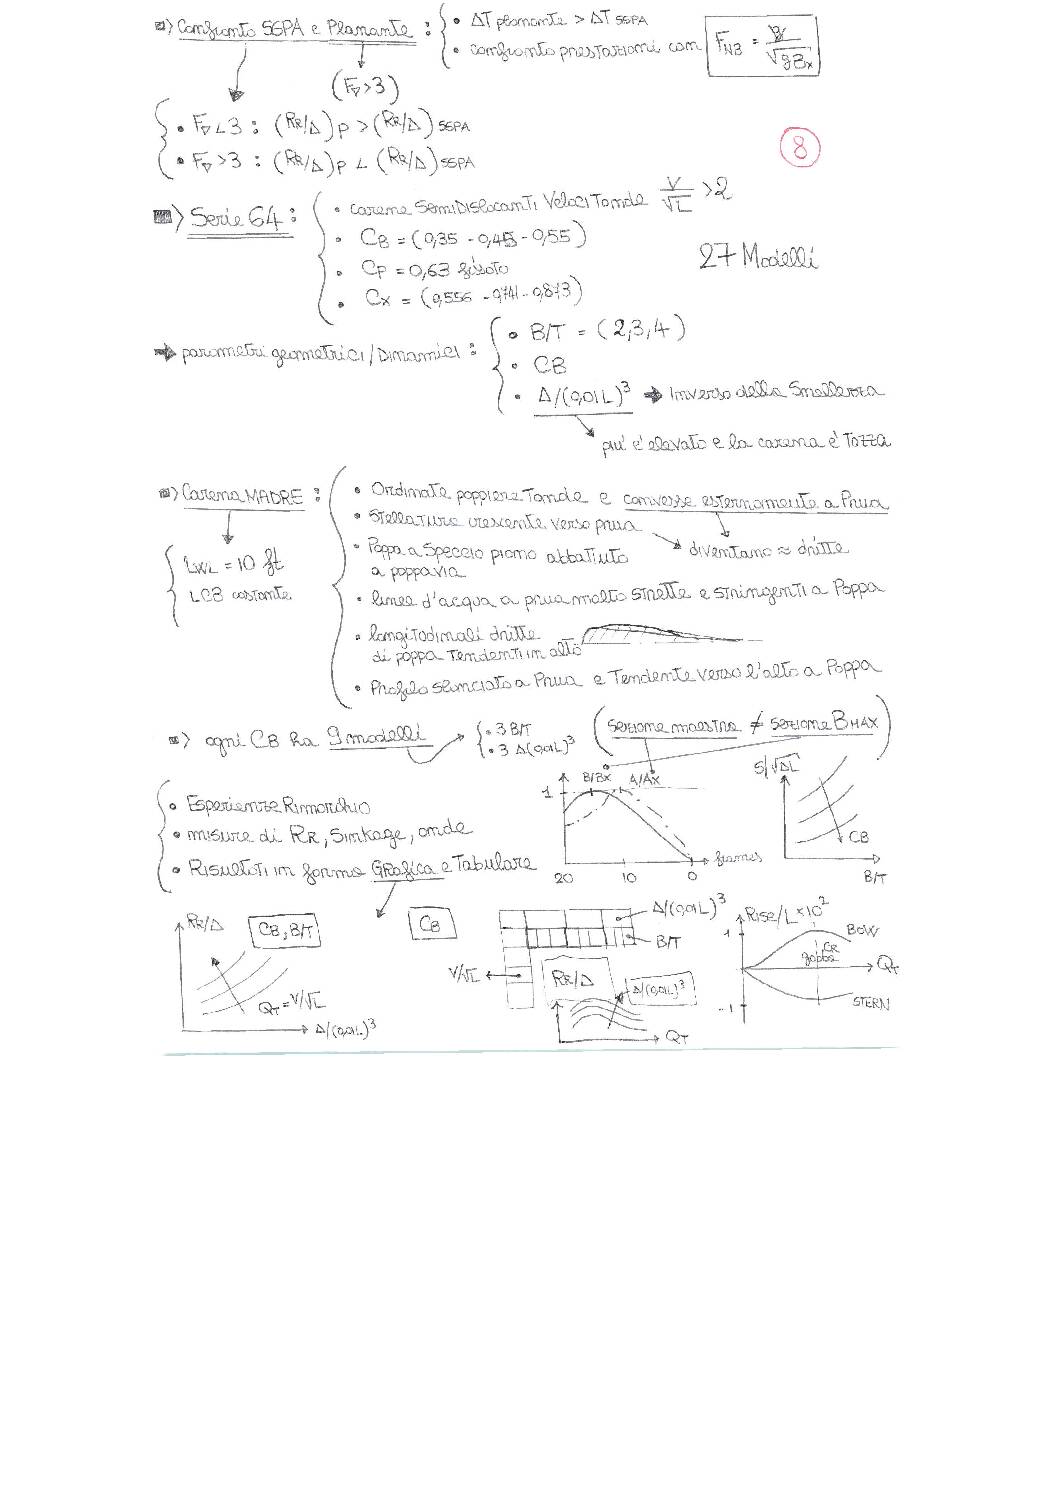 ⇒) Confronto SSPA e Planante : { • ΔT planante > ΔT SSPA
• confronto prestazioni con FNB = V/√gBx
(F∇>3)
• F∇<3 : (RR/Δ)P > (RR/Δ)SSPA
• F∇>3 : (RR/Δ)P < (RR/Δ)SSPA
8
⇒) Serie 64 : { • carene SemiDislocanti Veloci Tonde V/√L >2
• CB = (0,35 - 0,45 - 0,55)
27 Modelli
• CP = 0,63 fissato
• Cx = (0,556 - 0,741 - 0,873)
→ parametri geometrici/Dinamici : { • B/T = (2,3,4)
• CB
• Δ/(0,01L)³ → Inverso della Snellezza
più è elevato e la carena è Tozza
⇒) Carena MADRE : { • Ordinate poppiere Tonde e convesse esternamente a Prua
• Stellature crescente verso prua
→ diventano ≈ dritte
LWL = 10 ft
LCB costante
• Poppa a Specchio piano abbattuto
a poppavia
• linee d'acqua a prua molto strette e stringenti a Poppa
• longitudinali dritte
di poppa Tendenti in alto
• Profilo slanciato a Prua e Tendente verso l'alto a Poppa
⇒) ogni CB ha 9 modelli → { • 3 B/T
• 3 Δ/(0,01L)³
(sezione maestra ≠ sezione BMAX)
• Esperienze Rimorchio
• misure di RR, Sinkage, onde
• Risultati in forma Grafica e Tabulare
B/Bx A/Ax
1
frames
20 10 0
S/√ΔL
CB
B/T
RR/Δ
CB, B/T
QT = V/√L
Δ/(0,01L)³
CB
Δ/(0,01L)³
B/T
V/√L
RR/Δ
Δ/(0,01L)³
QT
Rise/L × 10²
1
BOW
QT
STERN
-1